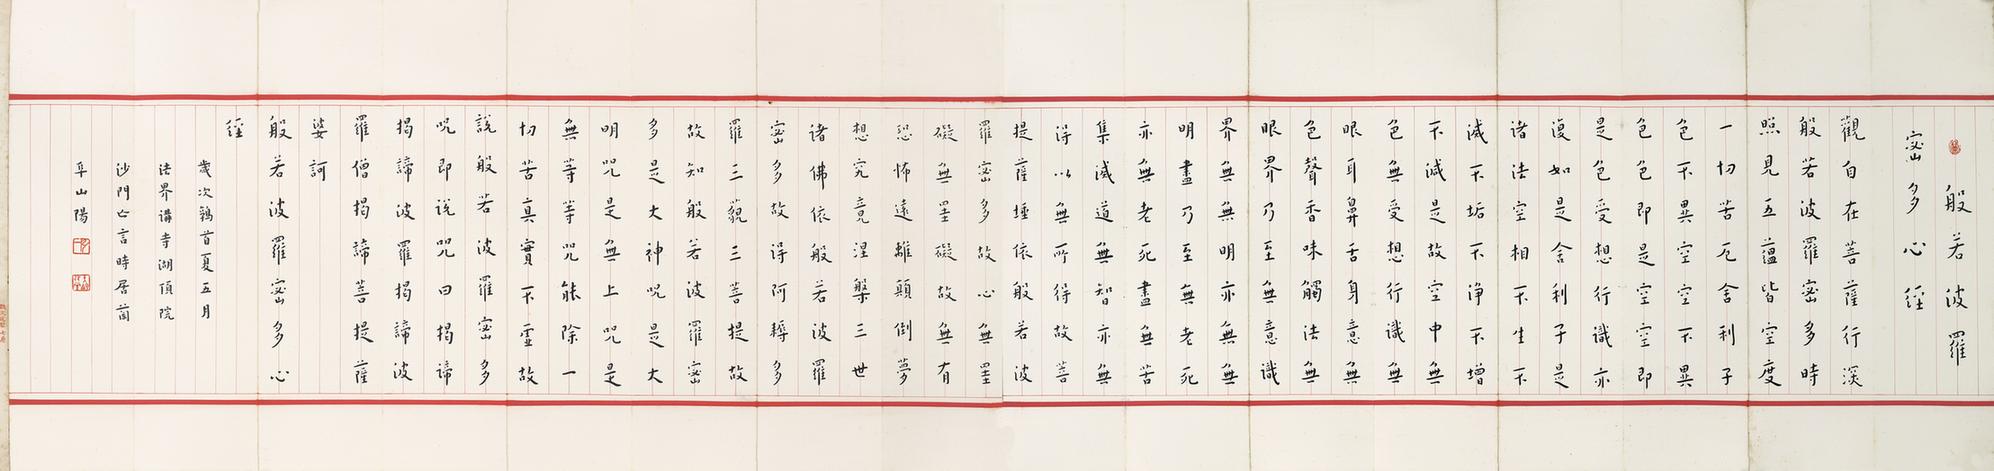 般若波羅
蜜多心經
觀自在菩薩行深
般若波羅蜜多時
照見五蘊皆空度
一切苦厄舍利子
色不異空空不異
色色即是空空即
是色受想行識亦
復如是舍利子是
諸法空相不生不
滅不垢不淨不增
不減是故空中無
色無受想行識無
眼耳鼻舌身意無
色聲香味觸法無
眼界乃至無意識
界無無明亦無無
明盡乃至無老死
亦無老死盡無苦
集滅道無智亦無
得以無所得故菩
提薩埵依般若波
羅蜜多故心無罣
礙無罣礙故無有
恐怖遠離顛倒夢
想究竟涅槃三世
諸佛依般若波羅
蜜多故得阿耨多
羅三藐三菩提故
故知般若波羅蜜
多是大神咒是大
明咒是無上咒是
無等等咒能除一
切苦真實不虛故
說般若波羅蜜多
咒即說咒曰揭諦
揭諦波羅揭諦波
羅僧揭諦菩提薩
婆訶
般若波羅蜜多心
經
歲次鶉首夏五月
法界講寺湖頂院
沙門亡言時居茵
阜山陽